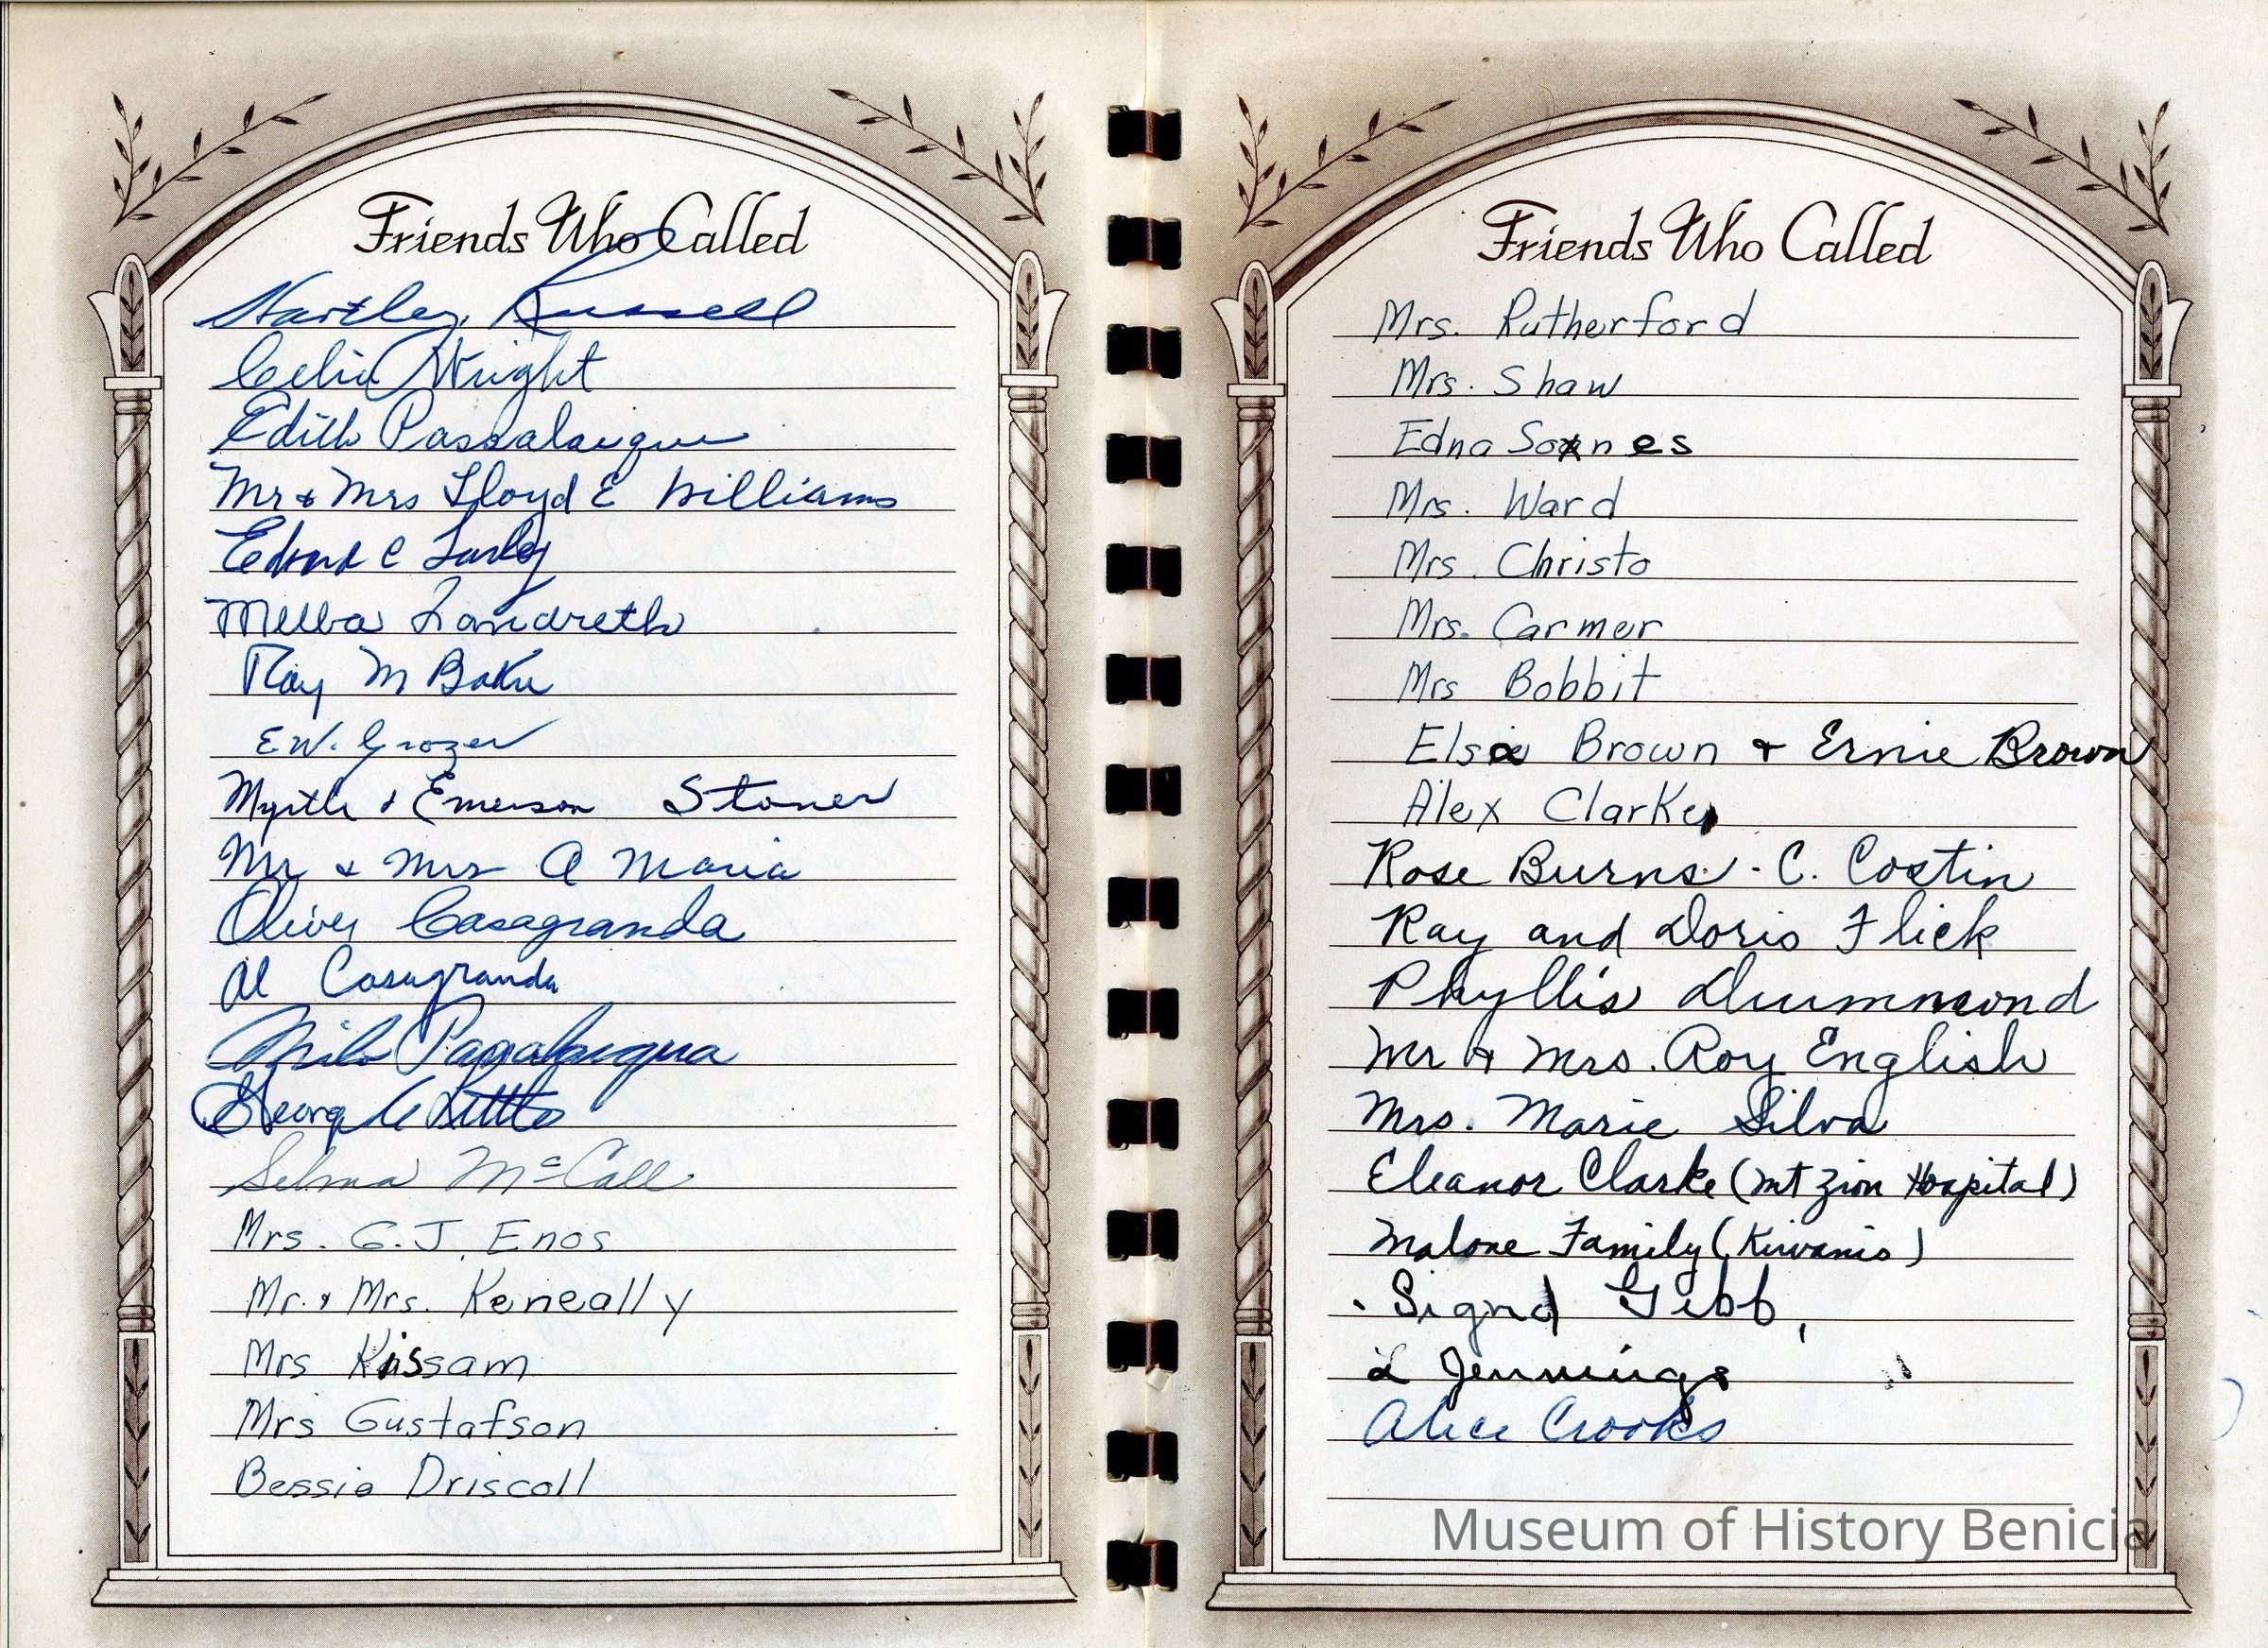 Friends Who Called
Hartley Russell
Celia Wright
Edith Passalacqua
Mr & Mrs Lloyd E Williams
C
Melba Landreth
Ray M Baker
E W. Grozer
Myrtle & Emerson Stoner
Mr & Mrs A Maria
Oliver Casagranda
Al Casagranda
Milo Passalacqua
George C Little
Selma McCall
Mrs. G. J. Enos
Mr. & Mrs. Keneally
Mrs Kissam
Mrs Gustafson
Bessie Driscoll
Friends Who Called
Mrs. Rutherford
Mrs. Shaw
Edna
Mrs. Ward
Mrs. Christo
Mrs. Carmer
Mrs Bobbit
Elsie Brown & Ernie Brown
Alex Clarke
Rose Burns - C. Costin
Ray and Doris Flick
Phyllis Drummond
Mr & Mrs. Roy English
Mrs. Marie Silva
Eleanor Clarke (Mt Zion Hospital)
Malone Family (Kiwanis)
Gibb,
Jennings
Alice Crooks
Museum of History Benicia